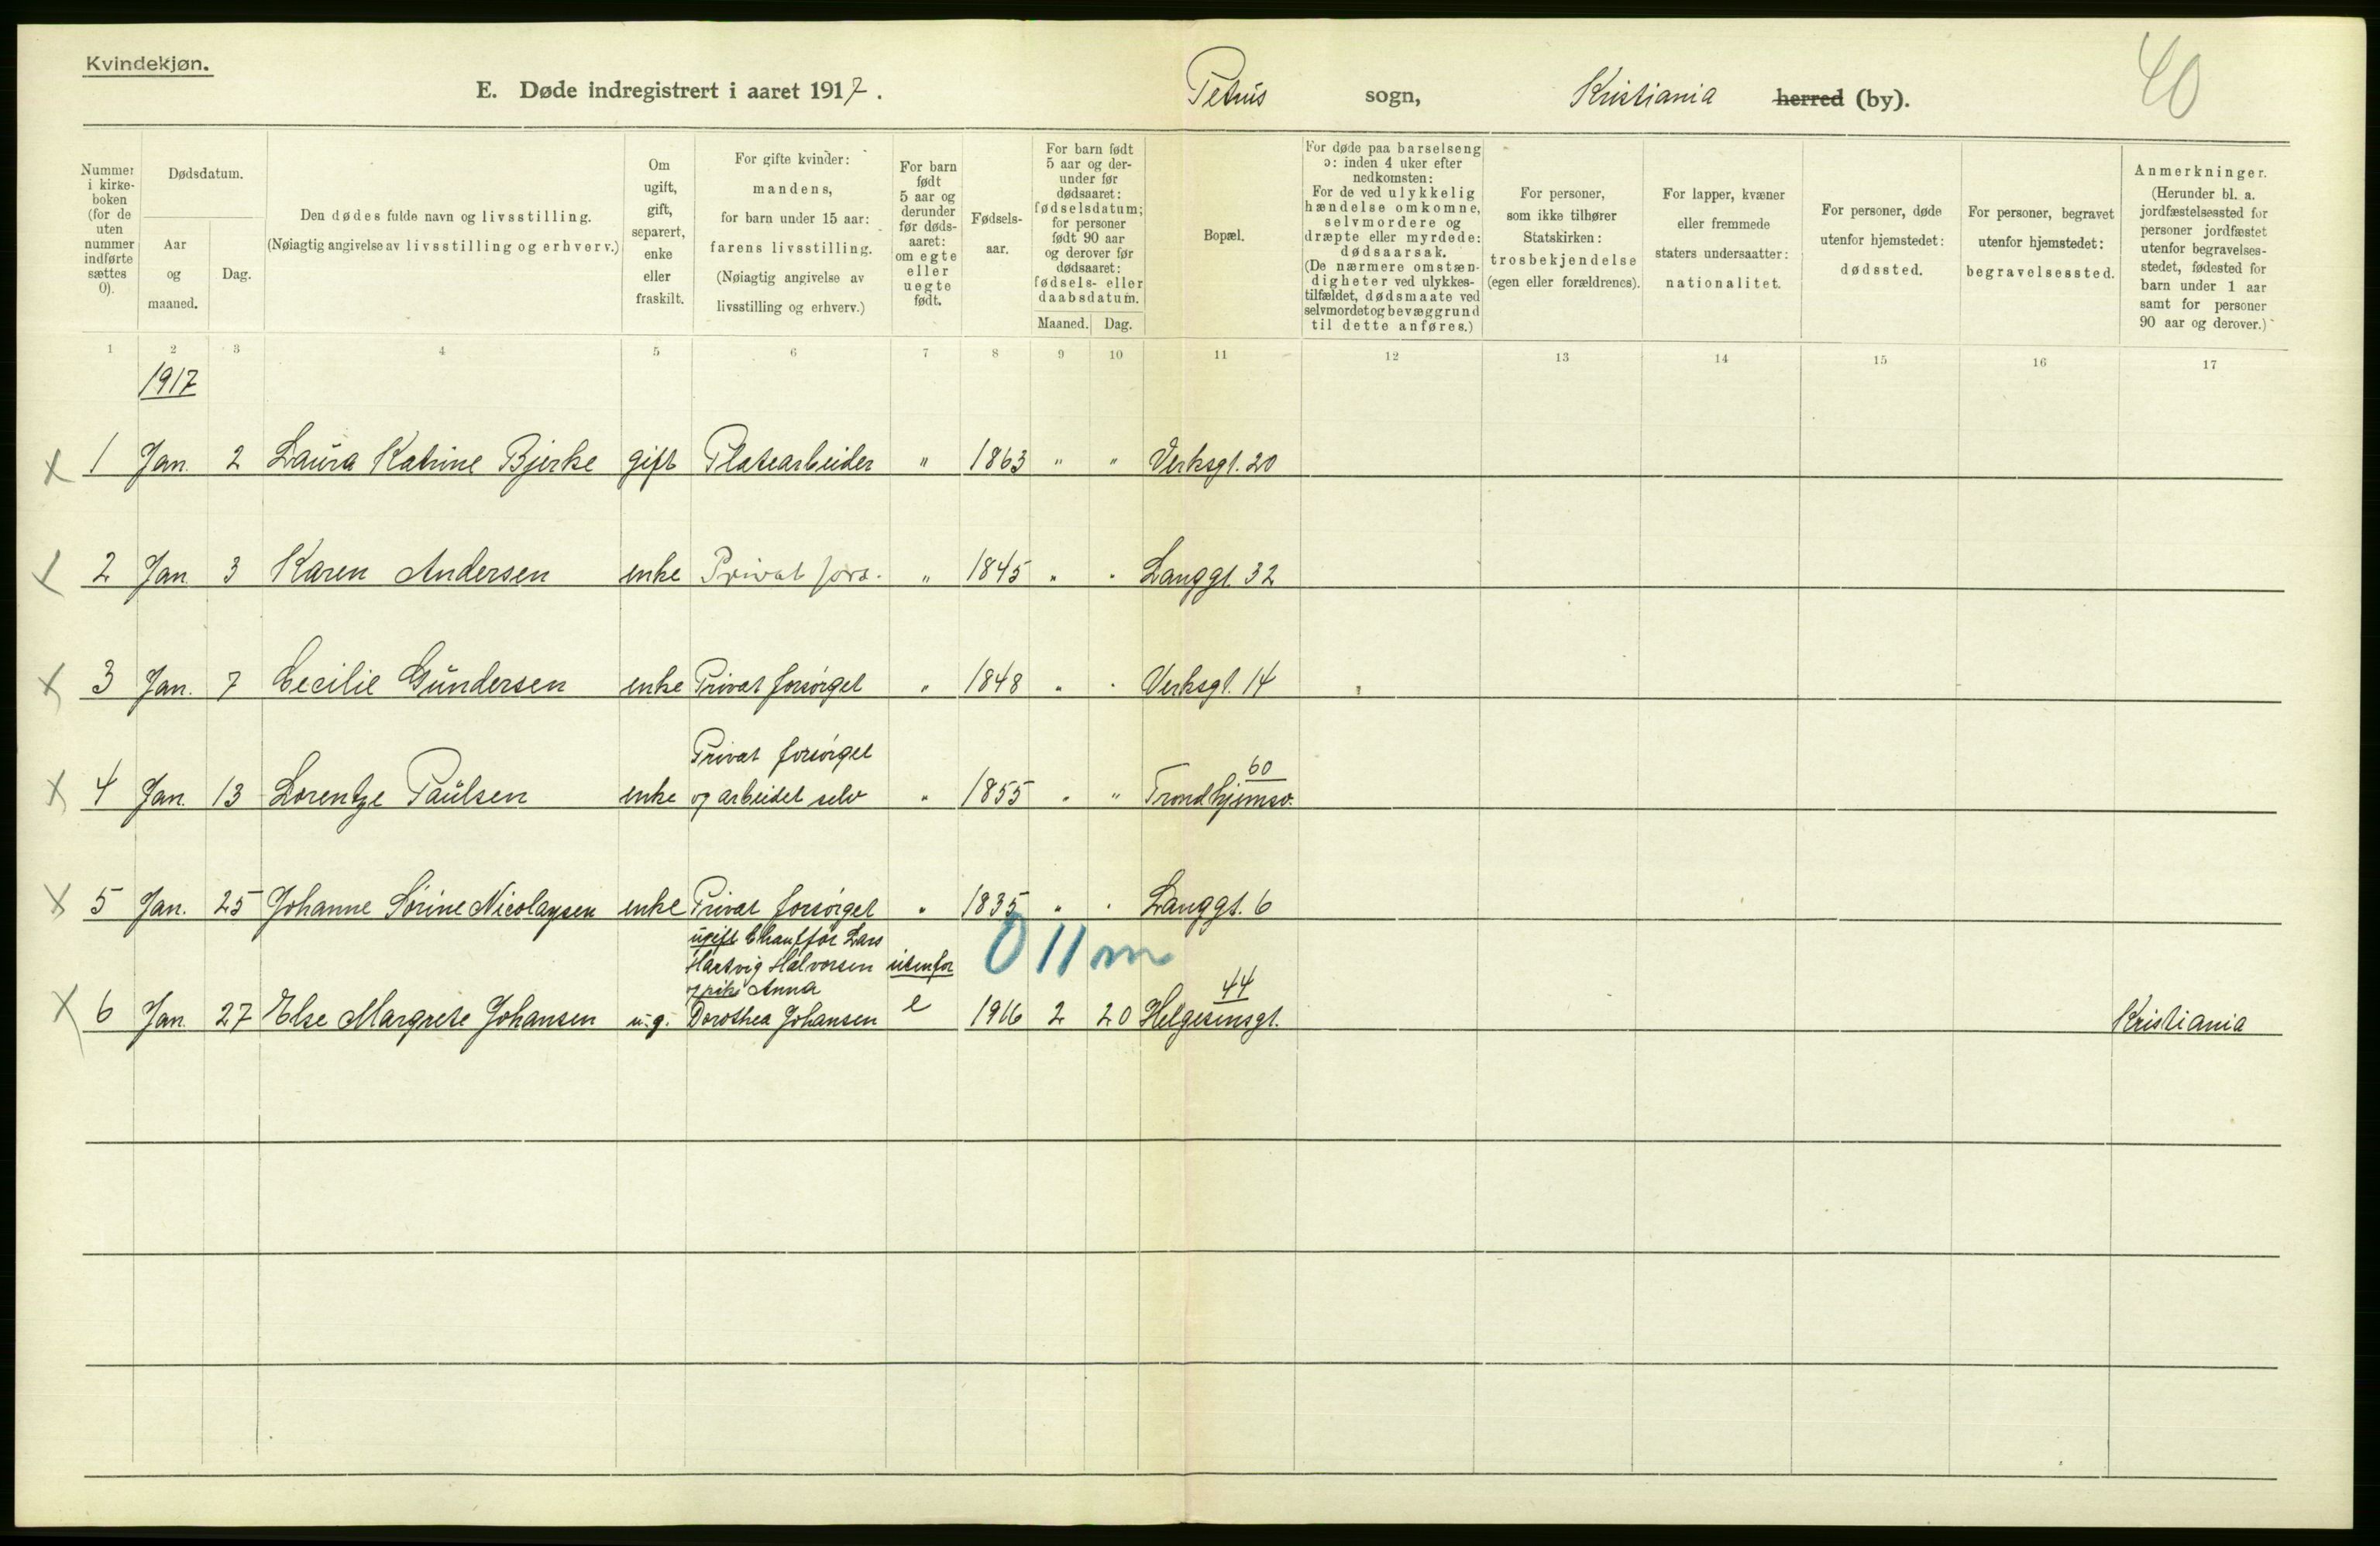 Kvindekjøn.
E. Døde indregistrert i aaret 1917. Petrus sogn, Kristiania herred (by).
40
Nummer i kirkeboken (for de uten nummer indførte sættes 0).
Dødsdatum.
Aar og maaned.
Dag.
Den dødes fulde navn og livsstilling.
(Nøiagtig angivelse av livsstilling og erhverv.)
Om ugift, gift, separert, enke eller fraskilt.
For gifte kvinder: mandens, for barn under 15 aar: farens livsstilling.
(Nøiagtig angivelse av livsstilling og erhverv.)
For barn født 5 aar og derunder før dødsaaret: om egte eller uegte født.
Fødselsaar.
For barn født 5 aar og derunder før dødsaaret: fødselsdatum; for personer født 90 aar og derover før dødsaaret: fødsels- eller daabsdatum.
Maaned. Dag.
Bopæl.
For døde paa barselseng ɔ: inden 4 uker efter nedkomsten:
For de ved ulykkelig hændelse omkomne, selvmordere og dræpte eller myrdede: dødsaarsak.
(De nærmere omstændigheter ved ulykkestilfældet, dødsmaate ved selvmordet og bevæggrund til dette anføres.)
For personer, som ikke tilhører Statskirken: trosbekjendelse (egen eller forældrenes).
For lapper, kvæner eller fremmede staters undersaatter: nationalitet.
For personer, døde utenfor hjemstedet: dødssted.
For personer, begravet utenfor hjemstedet: begravelsessted.
Anmerkninger.
(Herunder bl. a. jordfæstelsessted for personer jordfæstet utenfor begravelsesstedet, fødested for barn under 1 aar samt for personer 90 aar og derover.)
1 2 3 4 5 6 7 8 9 10 11 12 13 14 15 16 17
1917
x 1 Jan. 2 Laura Katrine Bjerke gift Platearbeider " 1863 " " Verksgt. 20
x 2 Jan 3 Karen Andersen enke Privat fors. " 1845 " " Langgt. 32
x 3 Jan. 7 Cecilie Gundersen enke Privat forsørget " 1848 " " Verksgt. 14
Privat forsørget 60
x 4 Jan. 13 Lorentze Paulsen enke og arbeidet selv " 1855 " " Trondhjemsv.
x 5 Jan. 25 Johanne Sørine Nicolaysen enke Privat forsørget " 1835 " " Langgt. 6
ugift Chauffør Lars 0 11 m
Hartvig Halvorsen utenfor
og pike Anna 44
x 6 Jan. 27 Else Margrete Johansen u.g. Dorothea Johansen e 1916 2 20 Helgesensgt. Kristiania